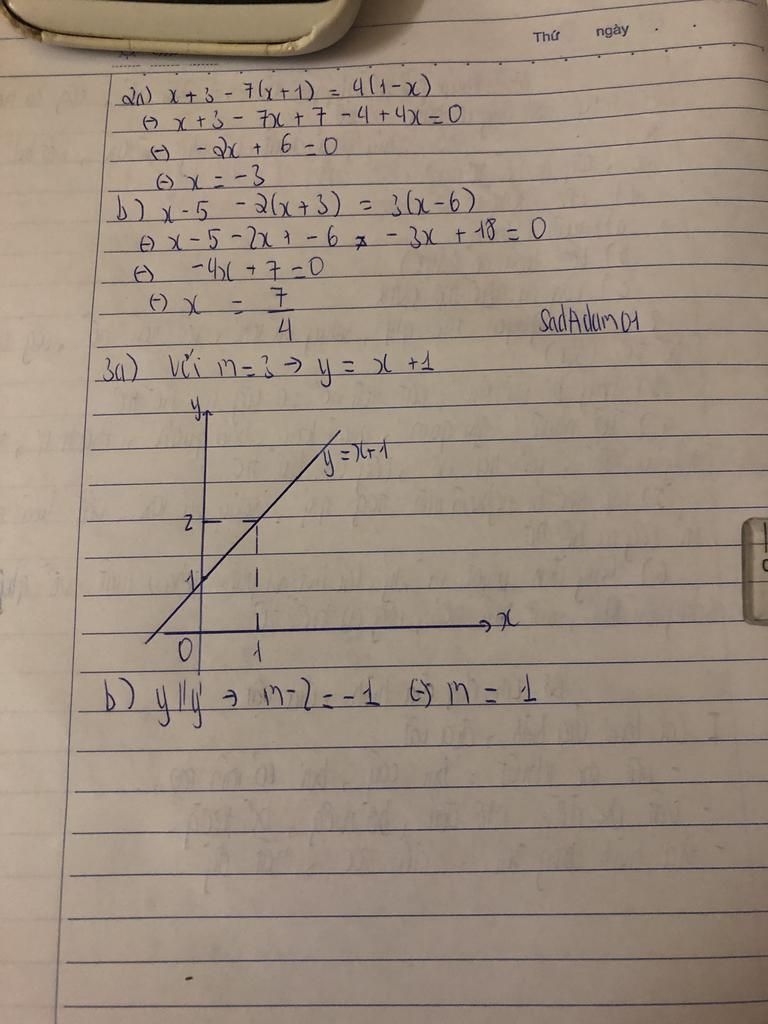 Thứ ngày
2a) x + 3 - 7(x+1) = 4(1-x)
(-) x + 3 - 7x + 7 - 4 + 4x = 0
(-) -2x + 6 = 0
(-) x = -3
b) x - 5 - 2(x+3) = 3(x-6)
(-) x - 5 - 2x + - 6 - 3x + 18 = 0
(-) -4x + 7 = 0
(-) x = 7/4
SadAdam01
3a) Với m = 3 → y = x + 1
y
y = x+1
2
1
x
0 1
b) y // y' → m - 2 = -1 (-) m = 1